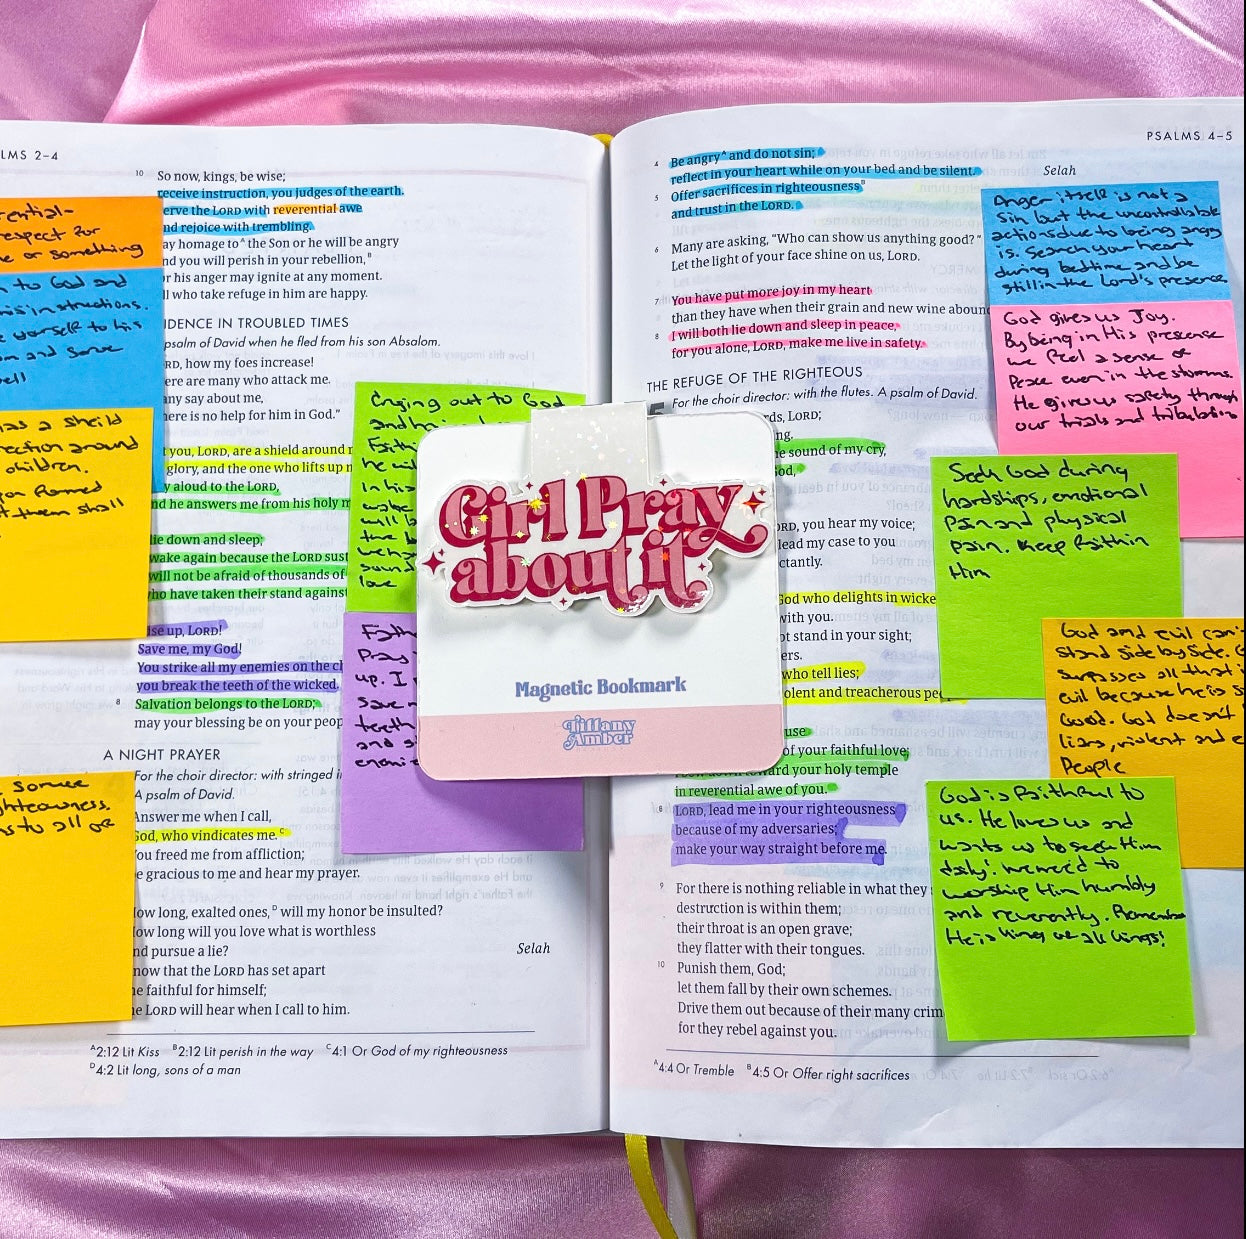 LMS 2–4
10 So now, kings, be wise;
receive instruction, you judges of the earth.
erve the LORD with reverential awe
nd rejoice with trembling.
ay homage to A the Son or he will be angry
nd you will perish in your rebellion, B
r his anger may ignite at any moment.
ll who take refuge in him are happy.
IDENCE IN TROUBLED TIMES
psalm of David when he fled from his son Absalom.
RD, how my foes increase!
ere are many who attack me.
any say about me,
here is no help for him in God."
t you, LORD, are a shield around
glory, and the one who lifts up
y aloud to the LORD,
nd he answers me from his holy
lie down and sleep;
wake again because the LORD sust
will not be afraid of thousands of
ho have taken their stand against
ise up, LORD!
Save me, my God!
You strike all my enemies on the ch
you break the teeth of the wicked.
8 Salvation belongs to the LORD;
may your blessing be on your peop
A NIGHT PRAYER
For the choir director: with stringed i
A psalm of David.
Answer me when I call,
God, who vindicates me. C
You freed me from affliction;
e gracious to me and hear my prayer.
How long, exalted ones, D will my honor be insulted?
ow long will you love what is worthless
nd pursue a lie?
Selah
now that the LORD has set apart
he faithful for himself;
he LORD will hear when I call to him.
A 2:12 Lit Kiss B 2:12 Lit perish in the way C 4:1 Or God of my righteousness
D 4:2 Lit long, sons of a man
rential-
respect for
e or something
n to God and
his instructions.
e yourself to his
and serve
ell
as a sheild
rection around
children.
gon formed
t them shall
somce
ghteowness.
ns to all of
Crying out to God
and
Faith
he wil
in his
wake
will b
the
we ha
sound
love
Fath
Pray
up. I
save m
teeth
and s
enemi
Girl Pray
about it
Magnetic Bookmark
Tiffany
Amber
PSALMS 4–5
4 Be angry A and do not sin;
reflect in your heart while on your bed and be silent.
Selah
5 Offer sacrifices in righteousness B
and trust in the LORD.
6 Many are asking, "Who can show us anything good?"
Let the light of your face shine on us, LORD.
7 You have put more joy in my heart
than they have when their grain and new wine abound
8 I will both lie down and sleep in peace,
for you alone, LORD, make me live in safety.
THE REFUGE OF THE RIGHTEOUS
5 For the choir director: with the flutes. A psalm of David.
rds, LORD;
ng.
e sound of my cry,
God,
ORD, you hear my voice;
lead my case to you
ctantly.
God who delights in wicke
with you.
ot stand in your sight;
ers.
who tell lies;
olent and treacherous peo
use
of your faithful love;
toward your holy temple
in reverential awe of you.
8 LORD, lead me in your righteousness
because of my adversaries;
make your way straight before me.
9 For there is nothing reliable in what they
destruction is within them;
their throat is an open grave;
they flatter with their tongues.
10 Punish them, God;
let them fall by their own schemes.
Drive them out because of their many crim
for they rebel against you.
A 4:4 Or Tremble B 4:5 Or Offer right sacrifices
Anger itself is not a
sin but the uncontrollable
actions due to being angry
is. Search your heart
during bedtime and be
still in the Lord's presence
God gives us Joy.
By being in His presence
we feel a sense of
Peace even in the storms.
He gives us safety through
our trials and tribulations
Seek God during
hardships, emotional
Pain and physical
pain. Keep faith in
Him
God and evil can't
stand side by side. G
surpasses all that i
evil because he is s
Good. God doesn't l
liars, violent and e
People
God is faithful to
us. He loves us and
wants us to seek Him
daily! we need to
worship Him humbly
and reverently. Remember
He is King of all kings!